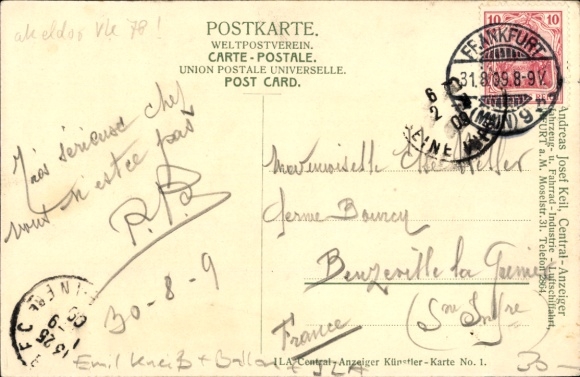 POSTKARTE.
WELTPOSTVEREIN.
CARTE - POSTALE.
UNION POSTALE UNIVERSELLE.
POST CARD.
10 10
FRANKFURT
31.8.09.8-9V.
(MAIN) 9
Andreas Josef Keil, Central-Anzeiger
Fahrzeug- u. Fahrrad-Industrie - Luftschiffahrt,
FURT a.M. Moselstr.31. Telefon 2864.
Très sérieuse chez
vous n'est ce pas
30-8-9
Mademoiselle
ferme Bourcy
Benzeville la Grenier
(Sne Infre)
France
Emil Kneiß + Ballon + JLA
30-
ILA/Central-Anzeiger Künstler-Karte No. 1.